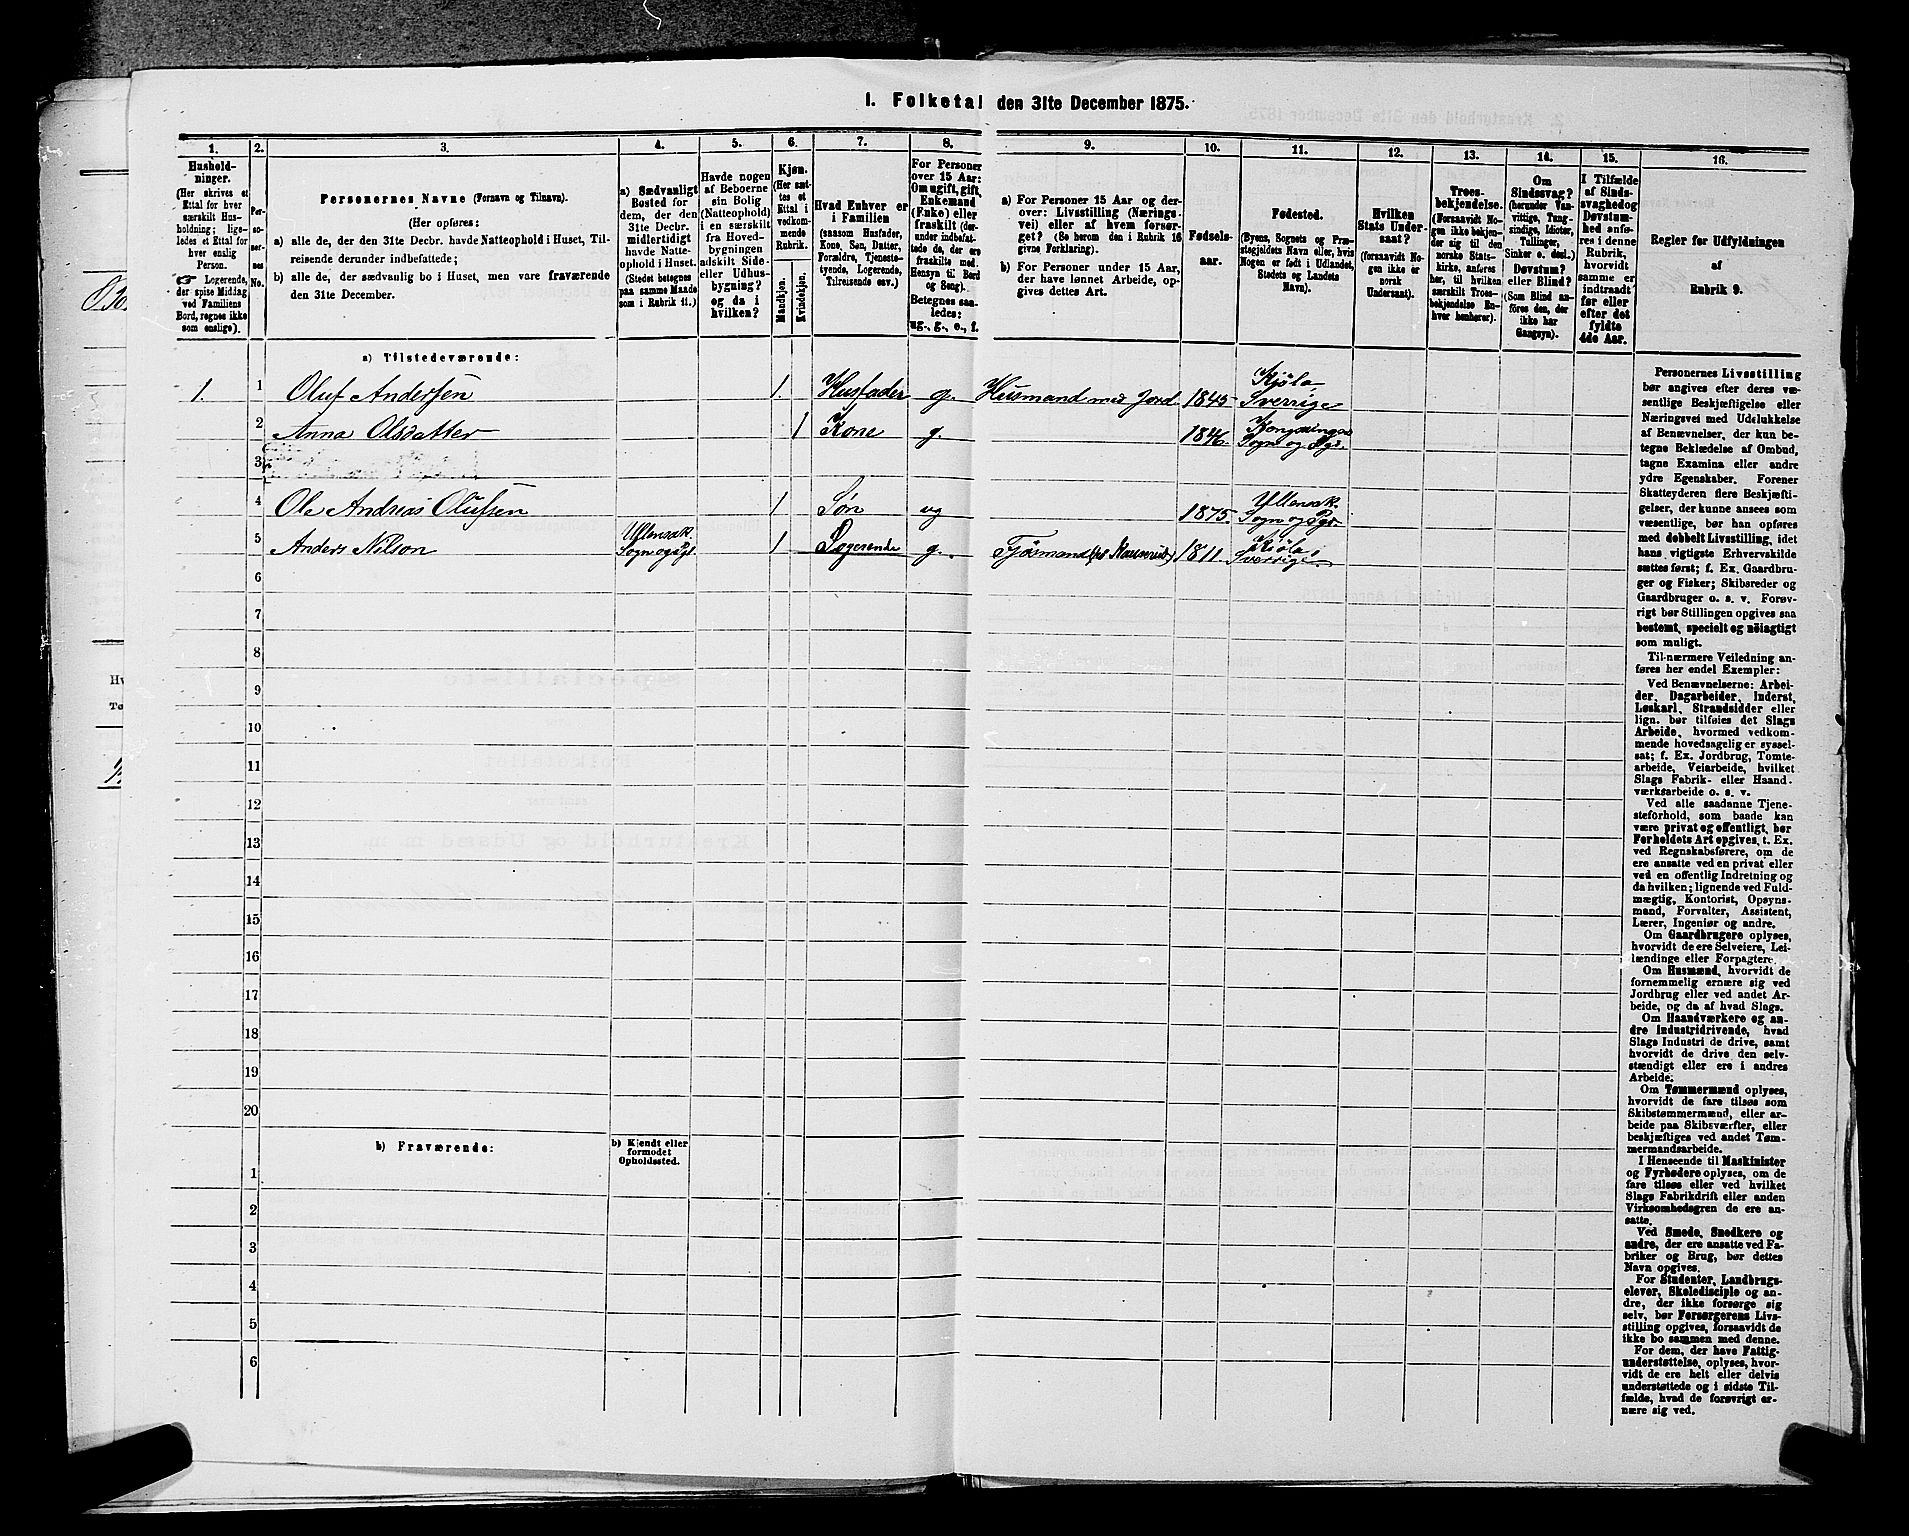 1. Folketal den 31te December 1875.
1.
Hushold-
ninger.
(Her skrives et
Ettal for hver
særskilt Hus-
holdning; lige-
ledes et Ettal for
hver enslig
Person.
Logerende,
der spise Middag
ved Familiens
Bord, regnes ikke
som enslige).
2.
Per-
so-
ner-
nes
No.
3.
Personernes Navne (Fornavn og Tilnavn).
(Her opføres:
a) alle de, der den 31te Decbr. havde Natteophold i Huset, Til-
reisende derunder indbefattede;
b) alle de, der sædvanlig bo i Huset, men vare fraværende
den 31te December.
4.
a) Sædvanligt
Bosted for
dem, der den
31te Decbr.
midlertidigt
havde Natte-
ophold i Huset.
(Stedet betegnes
paa samme Maade
som i Rubrik 11.)
5.
Havde nogen
af Beboerne
sin Bolig
(Natteophold)
i en særskilt
fra Hoved-
bygningen
adskilt Side-
eller Udhus-
bygning?
og da i
hvilken?
6.
Kjøn.
(Her sæt-
tes et
Ettal i
vedkom-
mende
Rubrik.
Mandkjøn.
Kvindekjøn.
7.
Hvad Enhver er
i Familien
(saasom Husfader,
Kone, Søn, Datter,
Forældre, Tjeneste-
tyende, Logerende,
Tilreisende osv.)
8.
For Personer
over 15 Aar:
Om ugift, gift,
Enkemand
(Enke) eller
fraskilt (der-
under indbefat-
tede da, der ere
fraskilte med
Hensyn til Bord
og Seng).
Betegnes saa-
ledes:
ug., g., e., f.
9.
a) For Personer 15 Aar og der-
over: Livsstilling (Nærings-
vei) eller af hvem forsør-
get? (Se herom den i Rubrik 16
givne Forklaring).
b) For Personer under 15 Aar,
der have lønnet Arbeide, op-
gives dettes Art.
10.
Fødsels-
aar.
11.
Fødested.
(Byens, Sognets og Præ-
stegjeldets Navn eller, hvis
Nogen er født i Udlandet,
Stedets og Landets
Navn).
12.
Hvilken
Stats Under-
saat?
(forsaavidt No-
gen ikke er
norsk
Undersaat).
13.
Troes-
bekjendelse.
(Forsaavidt No-
gen ikke bekjen-
der sig til den
norske Stats-
kirke, anføres
her, til hvilken
særskilt Troes-
bekjendelse En-
hver henhører).
14.
Om
Sindssvag?
(herunder Van-
vittige, Tung-
sindige, Idioter,
Tullinger,
Sinker o. desl.).
Døvstum?
eller Blind?
(Som Blind an-
føres den, der
ikke har
Gangsyn).
15.
I Tilfælde
af Sinds-
svaghed og
Døvstum-
hed anfø-
res i denne
Rubrik,
hvorvidt
samme er
indtraadt
før eller
efter det
fyldte
4de Aar.
16.
Regler for Udfyldningen
af
Rubrik 9.
a) Tilstedeværende:
1. 1 Oluf Andersen 1. Husfader g. Husmand med Jord 1845 Kjöla, Sverrige
2 Anna Olsdatter 1 Kone g. 1846 Sogn og Pgr.
3
4 Ole Andreas Olufsen 1 Søn ug 1875. Ullensak. Sogn og Pgr
5 Anders Nilson Ullensak. Sogn og Pgl 1 Logerende g. 1811. Kjöla i Sverrige
6
7
8
9
10
11
12
13
14
15
16
17
18
19
20
b) Fraværende:
b) Kjendt eller
formodet
Opholdssted.
1
2
3
4
5
6
Personernes Livsstilling
bør angives efter deres væ-
sentlige Beskjæftigelse eller
Næringsvei med Udelukkelse
af Benævnelser, der kun be-
tegne Beklædelse af Ombud,
tagne Examina eller andre
ydre Egenskaber. Forener
Skatteyderen flere Beskjæfti-
gelser, der kunne ansees som
væsentlige, bør han opføres
med dobbelt Livsstilling, idet
hans vigtigste Erhvervskilde
sættes først; f. Ex. Gaardbru-
ger og Fisker; Skibsreder og
Gaardbruger o. s. v. Forøv-
rigt bør Stillingen opgives saa
bestemt, specielt og nöiagtigt
som muligt.
Til nærmere Veiledning an-
føres her endel Exempler:
Ved Benævnelserne: Arbei-
der, Dagarbeider, Inderst,
Løskarl, Strandsidder eller
lign. bør tilføies det Slags
Arbeide, hvormed vedkom-
mende hovedsagelig er syssel-
sat; f. Ex. Jordbrug, Tomte-
arbeide, Veiarbeide, hvilket
Slags Fabrik- eller Haand-
værksarbeide o. s. v.
Ved alle saadanne Tjene-
steforhold, som baade kan
være privat og offentligt, bør
Forholdets Art opgives, t. Ex.
ved Regnskabsførere, om de
ere ansatte ved en privat eller
ved en offentlig Indretning og
da hvilken; lignende ved Fuld-
mægtig, Kontorist, Opsyns-
mand, Forvalter, Assistent,
Lærer, Ingeniør og andre.
Om Gaardbrugere oplyses,
hvorvidt de ere Selveiere, Lei-
lændinge eller Forpagtere.
Om Husmænd, hvorvidt de
fornemmelig ernære sig ved
Jordbrug eller ved andet Ar-
beide, og da af hvad Slags.
Om Haandværkere og an-
dre industridrivende, hvad
Slags Industri de drive, samt
hvorvidt de drive den selv-
stændigt eller ere i andres
Arbeide.
Om Tømmermænd oplyses,
hvorvidt de fare tilsøs som
Skibstømmermænd, eller ar-
beide paa Skibsværfter, eller
beskjæftiges ved andet Tøm-
mermandsarbeide.
I Henseende til Maskinister
og Fyrbødere oplyses, om de
fare tilsøs eller ved hvilket
Slags Fabrikdrift eller anden
Virksomhedsgren de ere an-
satte.
Ved Smede, Snedkere og
andre, der ere ansatte ved Fa-
briker og Brug, bør dettes
Navn opgives.
For Studenter, Landbrugs-
elever, Skoledisciple og an-
dre, der ikke forsørge sig
selv, bør Forsørgerens Livs-
stilling opgives, forsaavidt de
ikke bo sammen med denne.
For dem, der have Fattig-
understøttelse, oplyses, hvor-
vidt de ere helt eller delvis
understøttede og i sidste Til-
fælde, hvad de forøvrigt er-
nære sig ved.